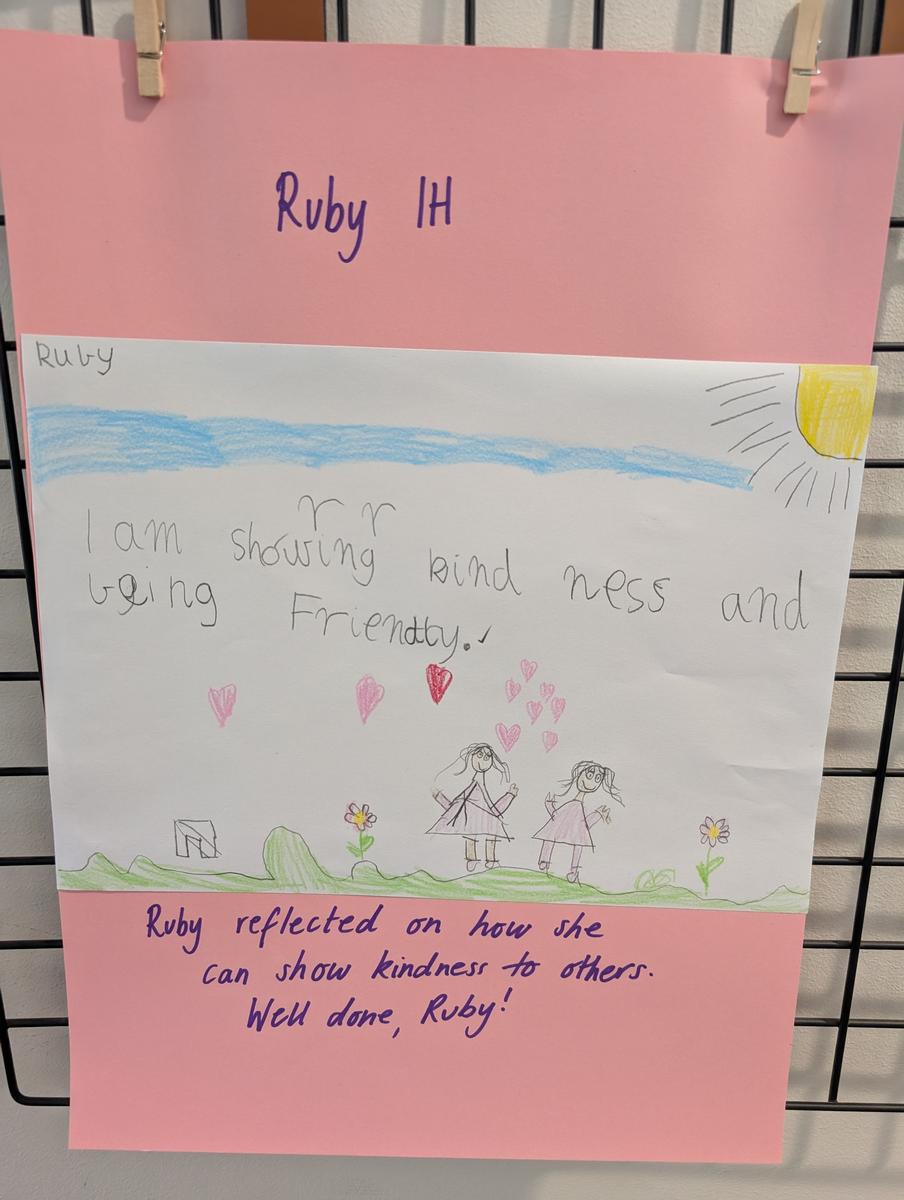 Ruby 1H
Ruby
I am showing kind ness and
being Friendly.
Ruby reflected on how she
can show kindness to others.
Well done, Ruby!